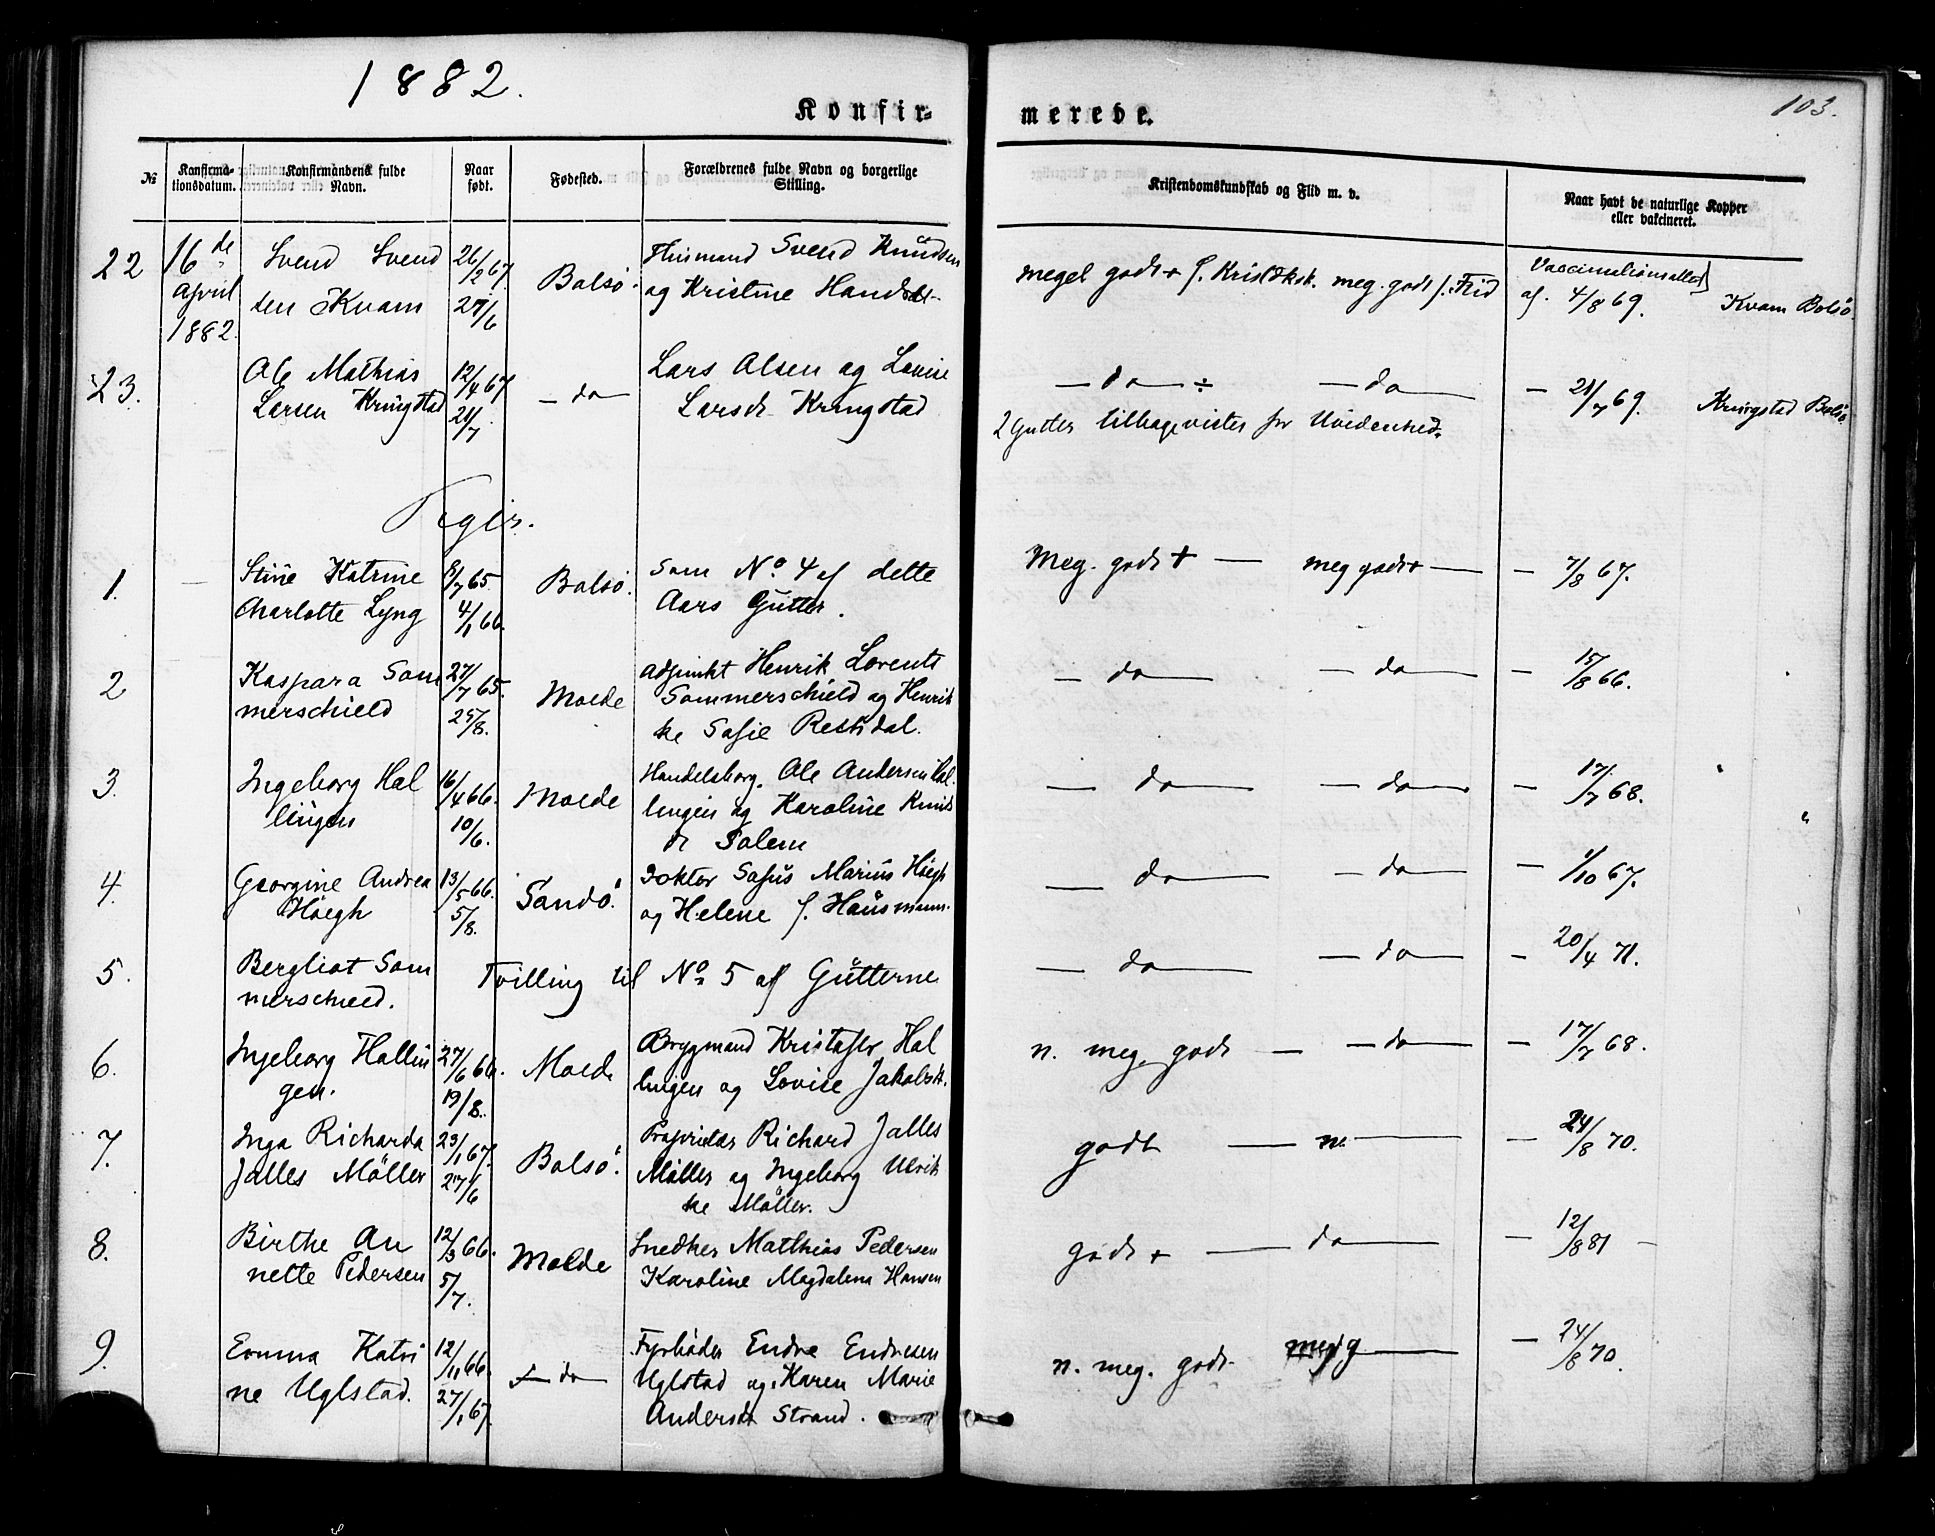 1882.
103.
Konfir- merede.
№ Konfirma- tionsdatum. Konfirmandens fulde Navn. Naar født. Fødested. Forældrenes fulde Navn og borgerlige Stilling. Kristendomskundskab og Flid m. v. Naar havt de naturlige Kopper eller vakcineret.
22 16 de April 1882.
Svend Svend
sen Kvam
26/2 67.
Bolsö.
Husmand Svend Knudsen
og Kristine Hansdt.
meget godt + f. meg. godt f. Flid
af. 4/8 69.
Kvam Bolsö.
23.
Ole Mathias
Larsen Kringstad
12/4 67
21/7
— do —
Lars Olsen og Lovise
Larsdt. Kringstad
— do — ÷ — do —
2 Gutter tilbagevistes for Uvidenhed.
— 21/7 69.
Kringstad Bolsö.
Piger.
1.
Stine Katrine
Charlotte Lyng
8/7 65.
4/1 66.
Bolsö.
Som No. 4 af dette
Aars Gutter.
Meg. godt + — meg godt + —
— 7/8 67.
2
Kaspara Som
merschield
27/7 65.
25/8.
Molde
Adjunkt Henrik Lorents
Sommerschield og Henrik
ke Sofie
— do — — do —
— 15/8 66.
3.
Ingeborg Hal
lingen
16/4 66.
10/6.
Molde
Handelsborg. Ole Andersen Hal-
lingen og Karoline Knuds
dt Solem
— do — — do —
— 17/7 68.
4.
Georgine Andrea
Höegh
13/5 66.
5/8.
Sandö.
Doktor Sofus Marius Höegh
og Helene f. Hausmann.
— do — — do —
— 1/10 67.
5.
Bergliot Som
merschield.
Tvilling til No 5 af Gutterne
— do — — do —
— 20/4 71.
6.
Ingeborg Hallin
gen.
27/6 66.
19/8.
Molde
Brygmand Kristofer Hal
lingen og Lovise Jakobsdt.
n. meg. godt — — do —
— 17/7 68.
7.
Inga Richarda
Jalles Möller
23/1 67.
27/6
Bolsö.
Proprietær Richard Jalles
Möller og Ingeborg Ulrik
ke Möller.
godt — n. —
— 24/8 70.
8.
Birthe An
nette Pedersen
12/3 66.
5/7.
Molde
Snedker Matthias Pedersen
Karoline Magdalena Hansen
godt + — do —
— 12/8 81 —
9.
Emma Katri
ne Uglstad.
12/11 66.
27/1 67.
— do —
Fyrböder Endre Endresen
Uglstad og Karen Marie
Andersdt Strand.
n. meg. godt meg —
— 24/8 70.